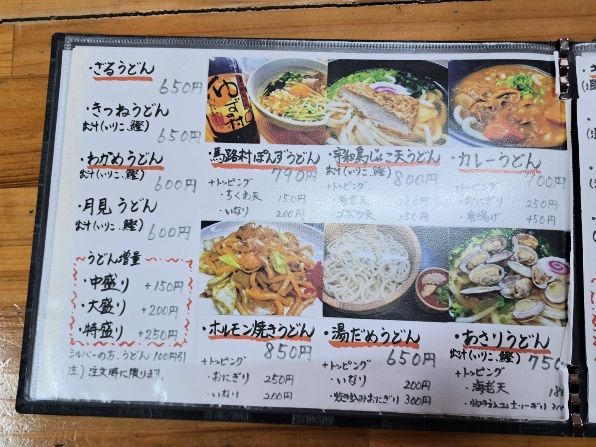 ・ざるうどん
650円
・きつねうどん
出汁(いりこ、鰹)
650円
・わかめうどん
出汁(いりこ、鰹)
600円
・月見うどん
出汁(いりこ、鰹)
600円
うどん増量
・中盛り +150円
・大盛り +200円
・特盛り +250円
シルバーの方、うどん100円引
注)注文時に限ります。
ゆず村
・馬路村ぽんずうどん
790円
+トッピング
・ちくわ天 150円
・いなり 200円
・宇和島じゃこ天うどん
出汁(いりこ、鰹)
800円
+トッピング
・海老天
・ゴボウ天
・カレーうどん
700円
+トッピング
・おにぎり 250円
・唐揚げ 450円
・ホルモン焼きうどん
850円
+トッピング
・おにぎり 250円
・いなり 200円
・湯だめうどん
650円
+トッピング
・いなり 200円
・炊き込みおにぎり 300円
・あさりうどん
出汁(いりこ、鰹)
750
+トッピング
・海老天